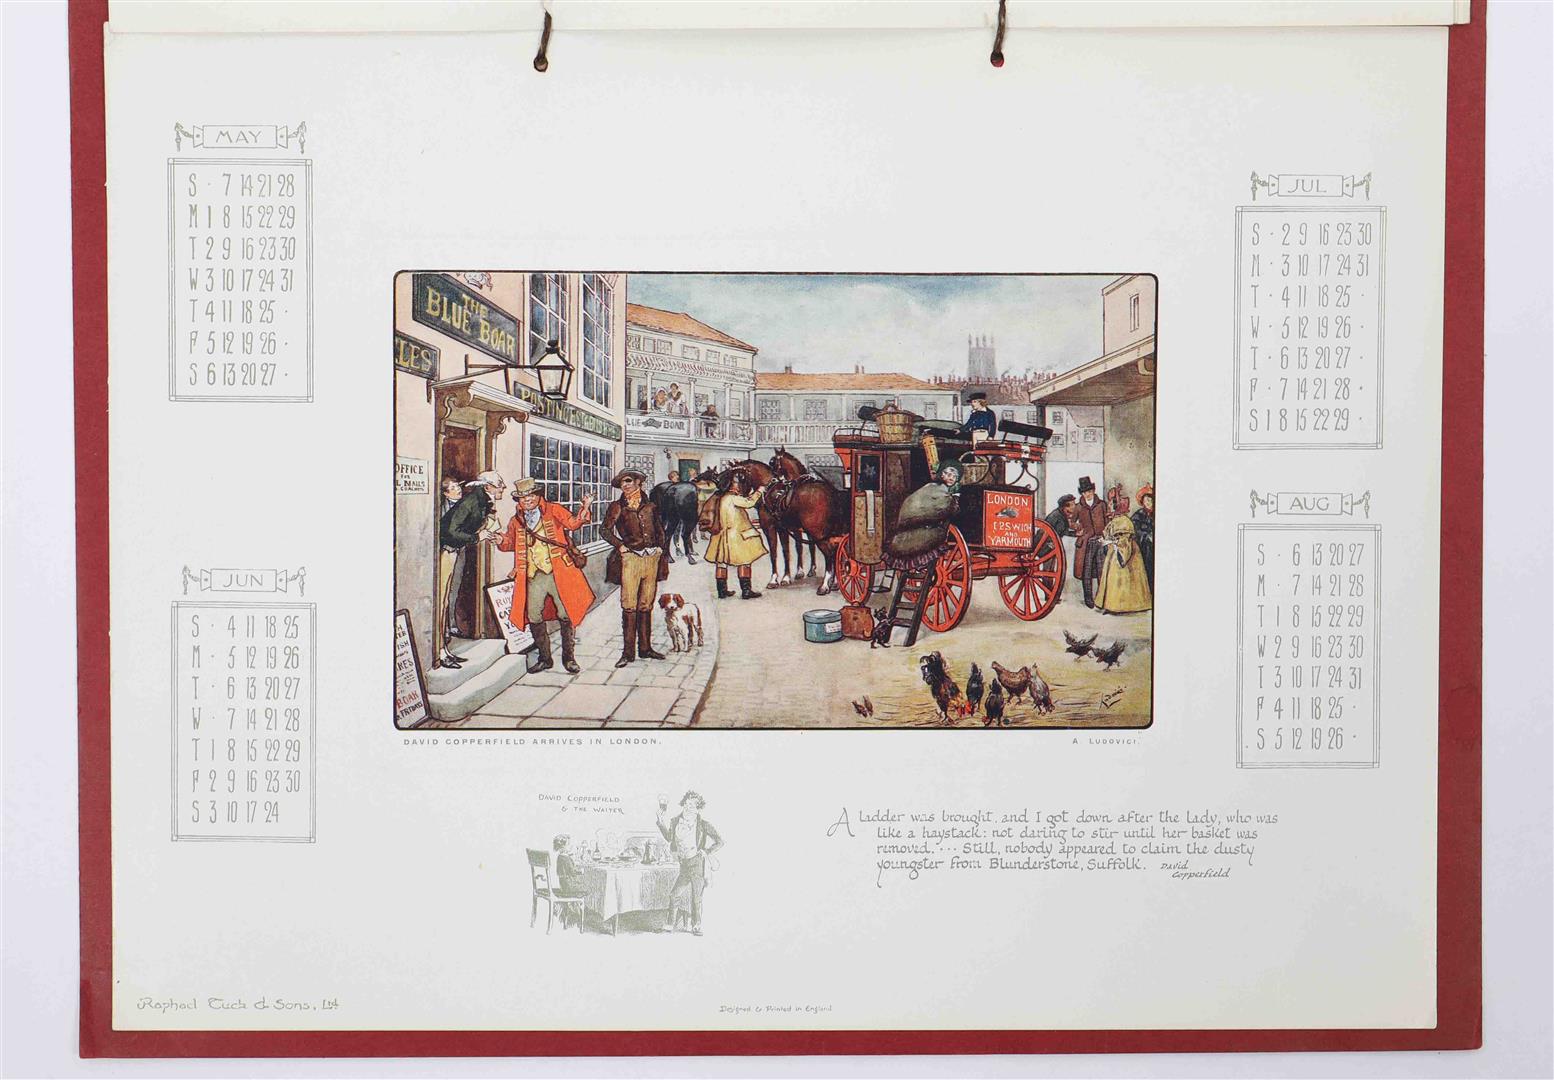 MAY
S · 7 14 21 28
M 1 8 15 22 29
T 2 9 16 23 30
W 3 10 17 24 31
T 4 11 18 25 ·
F 5 12 19 26 ·
S 6 13 20 27 ·
JUN
S · 4 11 18 25
M · 5 12 19 26
T · 6 13 20 27
W · 7 14 21 28
T 1 8 15 22 29
F 2 9 16 23 30
S 3 10 17 24
THE
BLUE BOAR
LES
OFFICE
FOR
L MAILS
& COACHES
BLUE BOAR
LONDON
IPSWICH
AND
YARMOUTH
DAVID COPPERFIELD ARRIVES IN LONDON.
A. LUDOVICI.
JUL
S · 2 9 16 23 30
M · 3 10 17 24 31
T · 4 11 18 25 ·
W · 5 12 19 26 ·
T · 6 13 20 27 ·
F · 7 14 21 28 ·
S 1 8 15 22 29 ·
AUG
S · 6 13 20 27
M · 7 14 21 28
T 1 8 15 22 29
W 2 9 16 23 30
T 3 10 17 24 31
F 4 11 18 25 ·
S 5 12 19 26 ·
DAVID COPPERFIELD
& THE WAITER
A ladder was brought, and I got down after the lady, who was
like a haystack: not daring to stir until her basket was
removed. ··· Still, nobody appeared to claim the dusty
youngster from Blunderstone, Suffolk. David
Copperfield
Raphael Tuck & Sons, Ltd
Designed & Printed in England